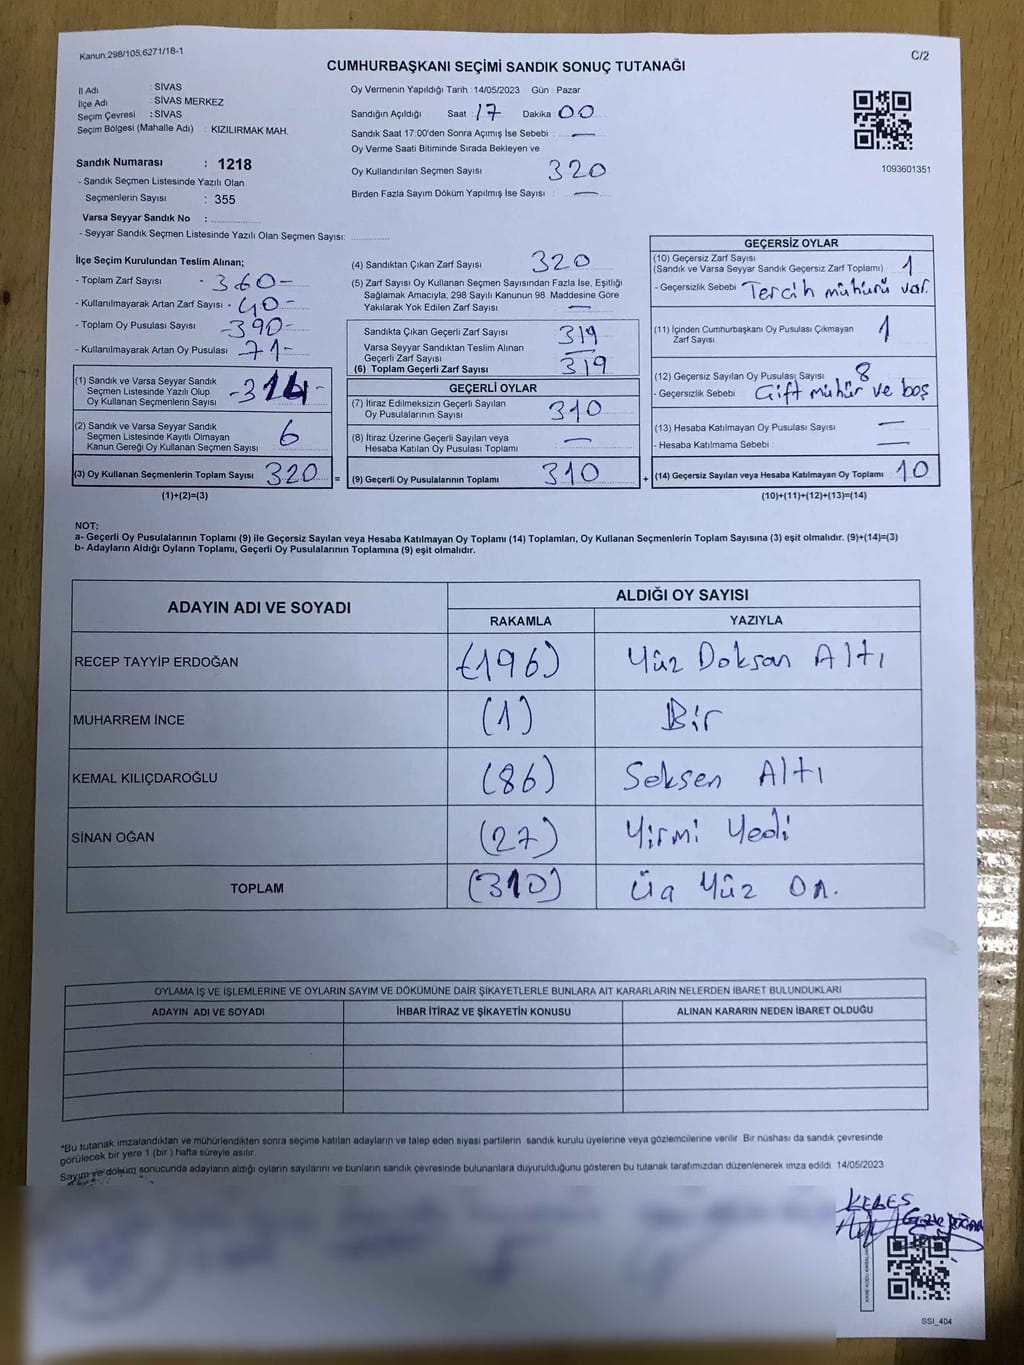 Kanun,298/105,6271/18-1
C/2
CUMHURBAŞKANI SEÇİMİ SANDIK SONUÇ TUTANAĞI
İl Adı : SİVAS
İlçe Adı : SİVAS MERKEZ
Seçim Çevresi : SİVAS
Seçim Bölgesi (Mahalle Adı) : KIZILIRMAK MAH.
Sandık Numarası : 1218
- Sandık Seçmen Listesinde Yazılı Olan
Seçmenlerin Sayısı : 355
Varsa Seyyar Sandık No :
- Seyyar Sandık Seçmen Listesinde Yazılı Olan Seçmen Sayısı:
Oy Vermenin Yapıldığı Tarih : 14/05/2023 Gün : Pazar
Sandığın Açıldığı Saat 17 Dakika 00
Sandık Saat 17:00'den Sonra Açımış İse Sebebi : —
Oy Verme Saati Bitiminde Sırada Bekleyen ve
Oy Kullandırılan Seçmen Sayısı 320
Birden Fazla Sayım Döküm Yapılmış İse Sayısı : —
1093601351
İlçe Seçim Kurulundan Teslim Alınan;
- Toplam Zarf Sayısı - 360-
- Kullanılmayarak Artan Zarf Sayısı - 40-
- Toplam Oy Pusulası Sayısı -390-
- Kullanılmayarak Artan Oy Pusulası -71-
(1) Sandık ve Varsa Seyyar Sandık
Seçmen Listesinde Yazılı Olup
Oy Kullanan Seçmenlerin Sayısı -314-
(2) Sandık ve Varsa Seyyar Sandık
Seçmen Listesinde Kayıtlı Olmayan
Kanun Gereği Oy Kullanan Seçmen Sayısı 6
(3) Oy Kullanan Seçmenlerin Toplam Sayısı 320 =
(1)+(2)=(3)
(4) Sandıktan Çıkan Zarf Sayısı 320
(5) Zarf Sayısı Oy Kullanan Seçmen Sayısından Fazla İse, Eşitliği
Sağlamak Amacıyla, 298 Sayılı Kanunun 98. Maddesine Göre
Yakılarak Yok Edilen Zarf Sayısı : —
Sandıkta Çıkan Geçerli Zarf Sayısı 319
Varsa Seyyar Sandıktan Teslim Alınan
Geçerli Zarf Sayısı —
(6) Toplam Geçerli Zarf Sayısı 319
GEÇERLİ OYLAR
(7) İtiraz Edilmeksizin Geçerli Sayılan
Oy Pusulalarının Sayısı 310
(8) İtiraz Üzerine Geçerli Sayılan veya
Hesaba Katılan Oy Pusulası Toplamı —
(9) Geçerli Oy Pusulalarının Toplamı 310 +
GEÇERSİZ OYLAR
(10) Geçersiz Zarf Sayısı
(Sandık ve Varsa Seyyar Sandık Geçersiz Zarf Toplamı) 1
- Geçersizlik Sebebi Tercih mühürü var.
(11) İçinden Cumhurbaşkanı Oy Pusulası Çıkmayan
Zarf Sayısı 1
(12) Geçersiz Sayılan Oy Pusulası Sayısı 8
- Geçersizlik Sebebi Çift mühür ve boş
(13) Hesaba Katılmayan Oy Pusulası Sayısı —
- Hesaba Katılmama Sebebi : —
(14) Geçersiz Sayılan veya Hesaba Katılmayan Oy Toplamı 10
(10)+(11)+(12)+(13)=(14)
NOT:
a- Geçerli Oy Pusulalarının Toplamı (9) ile Geçersiz Sayılan veya Hesaba Katılmayan Oy Toplamı (14) Toplamları, Oy Kullanan Seçmenlerin Toplam Sayısına (3) eşit olmalıdır. (9)+(14)=(3)
b- Adayların Aldığı Oyların Toplamı, Geçerli Oy Pusulalarının Toplamına (9) eşit olmalıdır.
ADAYIN ADI VE SOYADI ALDIĞI OY SAYISI
RAKAMLA YAZIYLA
RECEP TAYYİP ERDOĞAN (196) Yüz Doksan Altı
MUHARREM İNCE (1) Bir
KEMAL KILIÇDAROĞLU (86) Seksen Altı
SİNAN OĞAN (27) Yirmi Yedi
TOPLAM (310) Üç Yüz On.
OYLAMA İŞ VE İŞLEMLERİNE VE OYLARIN SAYIM VE DÖKÜMÜNE DAİR ŞİKAYETLERLE BUNLARA AİT KARARLARIN NELERDEN İBARET BULUNDUKLARI
ADAYIN ADI VE SOYADI İHBAR İTİRAZ VE ŞİKAYETİN KONUSU ALINAN KARARIN NEDEN İBARET OLDUĞU
*Bu tutanak imzalandıktan ve mühürlendikten sonra seçime katılan adayların ve talep eden siyasi partilerin sandık kurulu üyelerine veya gözlemcilerine verilir. Bir nüshası da sandık çevresinde
görülecek bir yere 1 (bir ) hafta süreyle asılır.
Sayım ve döküm sonucunda adayların aldığı oyların sayılarını ve bunların sandık çevresinde bulunanlara duyurulduğunu gösteren bu tutanak tarafımızdan düzenlenerek imza edildi. 14/05/2023
SSI_404